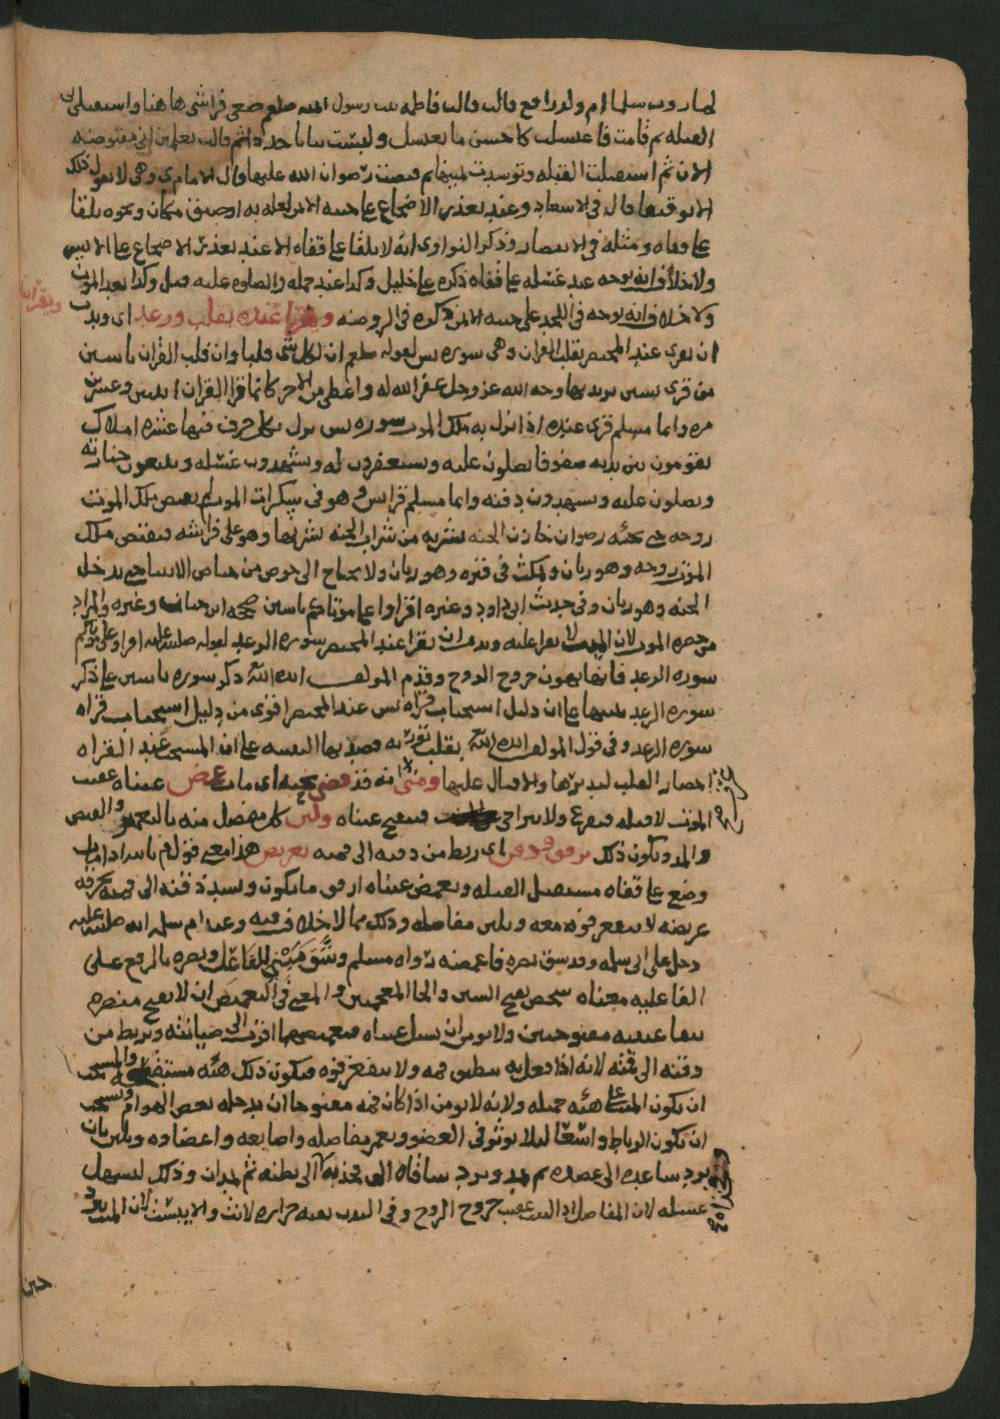 لما روت سلما ام ولد رافع قالت قالت فاطمه بنت رسول الله صلعم ضعي فراشي هاهنا واستقبلي بي
القبله ثم قامت فاغتسلت كاحسن ما يغتسل ولبست ثيابا جددا ثم قالت تعلمين اني مقبوضه
الان ثم استقبلت القبله وتوسدت يمينها ثم قبضت رضوان الله عليها وقال الامام ي وهي لا تقول ذلك
الا توقيفا قال في الاسعاد وعند تعذر الاضجاع على جنبه الايمن لعله به او ضيق مكان ونحوه يلقا
على قفاه ومثله في الانتصار وذكر النواوي انه لا يلقا على قفاه الا عند تعذر الاضجاع على الايسر
ولا خلاف انه يوجه عند غسله على قفاه ذكره علي خليل وكذا عند حمله والصلوه عليه قيل وكذا بعد الموت
ولا خلاف انه يوجه في اللحد على جنبه الايمن ذكره في الروضه ويقرا عنده بقلب ورعد اي وندب
ان يقرى عند المحتضر بقلب القران وهي سوره يس لقوله صلعم ان لكل شي قلبا وان قلب القران ياسين
من قرى يسين يريد بها وجه الله عز وجل غفر الله له واعطي من الاجر كانما قرا القران اثنتين وعشرين
مره وايما مسلم قرى عنده اذا نزل به ملك الموت سوره يس نزل بكل حرف فيها عشره املاك
يقومون بين يديه صفوفا يصلون عليه ويستغفرون له ويشهدون غسله ويتبعون جنازته
ويصلون عليه ويشهدون دفنه وايما مسلم قرا يس وهو في سكرات الموت لم يقبض ملك الموت
روحه حتى يجئه رضوان خازن الجنه بشربه من شراب الجنه يشربها وهو على فراشه فيقبض ملك
الموت روحه وهو ريان ويمكث في قبره وهو ريان ولا يحتاج الى حوض من حياض الانبيا حتى يدخل
الجنه وهو ريان وفي حديث ابي داود وغيره اقراوا على موتاكم ياسين صححه ابن حبان وغيره والمراد
من حضره الموت لان الميت لا يقرا عليه وندب ان يقرا عند المحتضر سوره الرعد لقوله صلى الله عليه اقراوا على موتاكم
سوره الرعد فانها تهون خروج الروح وقدم المولف ايده الله ذكر سوره ياسين على ذكر
سوره الرعد تنبيها على ان دليل استحباب قراة يس عند المحتضر اقوى من دليل استحباب قراة
سوره الرعد وفي قول المولف ايده الله بقلب توريه وقصد بها التنبيه على ان المستحب عند القراه
احضار القلب لتدبرها والاقبال عليها ومتى انه قد قضى نحبه اي مات غمض عيناه عقيب
الموت لا قبله فيفزع ولا يتراخى فتفتح عيناه ولين كل مفصل منه بالتغميز والقبض
والمد ويكون ذلك برفق وذقن اي ربط من ذقنه الى قمته بعريض هذا معنى قولهم
وضع على قفاه مستقبل القبله ويغمض عيناه ارفق ما يكون ويشد ذقنه الى قمته بخرقه
عريضه لا ينفغر فوه معه ويلين مفاصله وذلك مما لا خلاف فيه وعن ام سلمه انه صلى الله عليه
دخل على ابي سلمه وقد شق بصره فاغمضه رواه مسلم وشق مبني للفاعل وبصره بالرفع على
الفاعليه معناه شخص بفتح الشين والخا المعجمتين والمعنى في التغميض ان لا يقبح منظره
ببقا عينيه مفتوحتين ولا يومن ان تسيل عيناه فتغميضهما اقرب الى صيانته ويربط من
ذقنه الى قمته لانه اذا فعل به ينطبق فمه ولا ينفغر فوه فيكون ذلك هئه مستقبحه والمستحب
ان يكون الميت على هئه جميله ولانه لا يومن اذا كان فمه مفتوحا ان يدخله بعض الهوام ويستحب
ان يكون الرباط واسعا ليلا يوثر في العضو ويغمز مفاصله واصابعه واعضاوه ويلين بان
يرد ساعده الى عضده ثم يمد ويرد ساقاه الى فخذيه الى بطنه ثم يمدان وذلك ليسهل
غسله لان المفاصل اذا لينت عقيب خروج الروح وفي البدن بقيه حراره لانت والا يبست لان الميت يبرد
ويقرا
حين